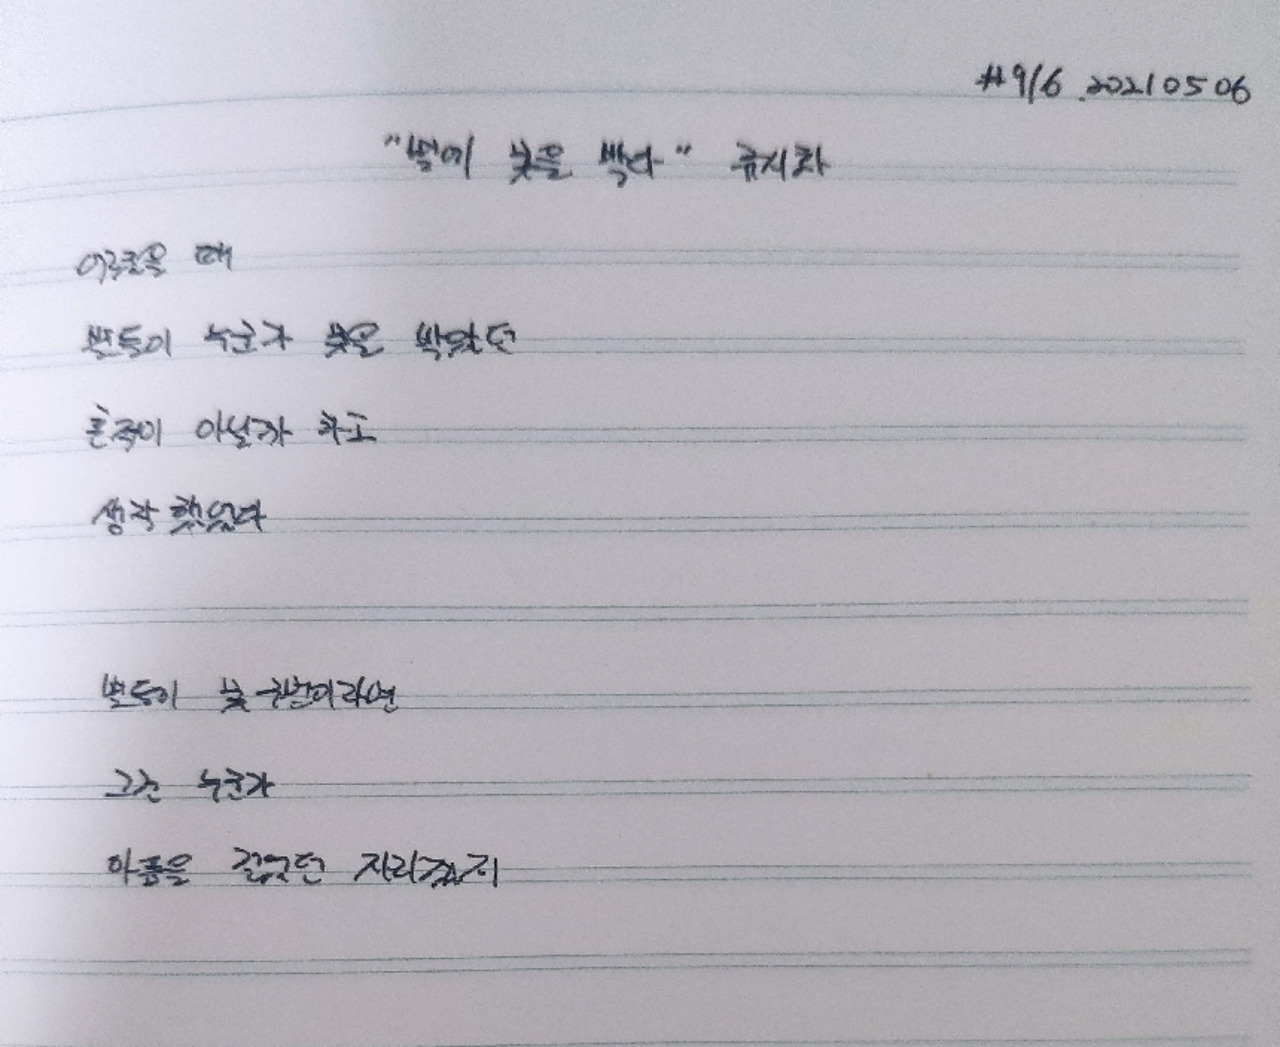 #916 .20210506
"별에 못을 박다" 류시화
어렸을 때
별들이 누군가 못을 박았던
흔적이 아닐까 하고
생각했었다
별들이 못 구멍이라면
그건 누군가
아픔을 걸었던 자리겠지